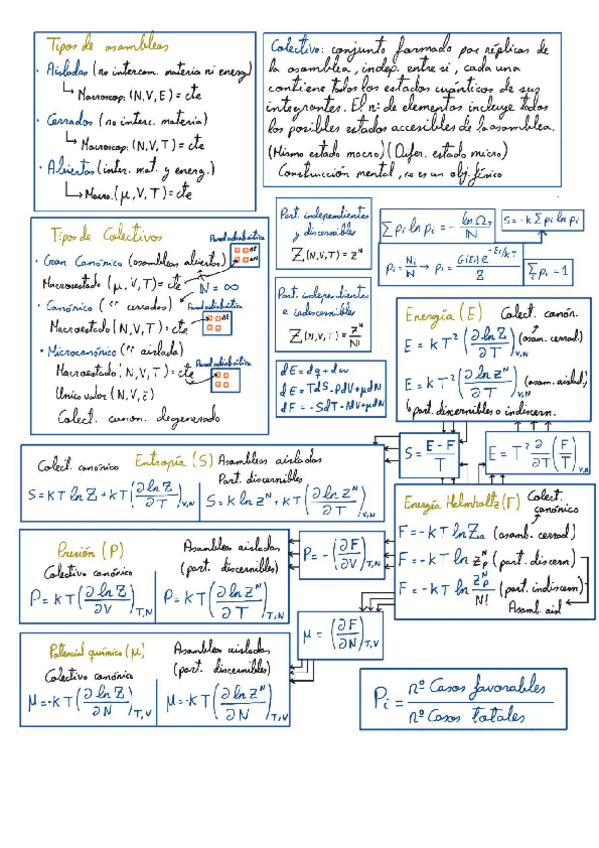 Tipos de asambleas
· Aisladas (no intercam. materia ni energ.)
↳ Macroscop. (N,V,E) = cte
· Cerrados (no interc. materia)
↳ Macroscop. (N,V,T) = cte
· Abiertos (inter. mat. y energ.)
↳ Macro. (μ,V,T) = cte
Colectivo: conjunto formado por réplicas de
la asamblea, indep. entre sí, cada una
contiene todos los estados cuánticos de sus
integrantes. El nº de elementos incluye todos
los posibles estados accesibles de la asamblea.
(Mismo estado macro) (Difer. estado micro)
Construcción mental, no es un obj. físico
Tipos de Colectivos
Pared adiabática
· Gran Canónico (asambleas abiertas)
Macroestado (μ,V,T) = cte N = ∞
· Canónico (" cerrados) Pared adiabática
Macroestado (N,V,T) = cte
· Microcanónico (" aislada)
Pared adiabática
Macroestado (N,V,T) = cte
Unico valor (N,V,E)
Colect. canon. degenerado
Part. independientes
y discernibles
Z(N,V,T) = z^N
Part. independientes
e indiscernibles
Z(N,V,T) = z^N/N!
dE = dq + dw
dE = TdS - PdV + μdN
dF = -SdT - PdV + μdN
∑ pi ln pi = - ln Ω_T / N
S = -k ∑ pi ln pi
pi = Ni/N → pi = G(Ei) e^(-Ei/kT) / Z
∑i pi = 1
Energía (E) Colect. canón.
E = kT² (∂ln Z/∂T)V,N (asam. cerrad.)
E = kT² (∂ln Z^N/∂T)V,N (asam. aislad.)
↳ part. discernibles o indiscern.
S = (E - F)/T
E = T² ∂/∂T (F/T)V,N
Colect. canónico Entropía (S) Asambleas aisladas
Part. discernibles
S = kT ln Z + kT (∂ln Z/∂T)V,N
S = k ln z^N + kT (∂ln z^N/∂T)V,N
Energía Helmholtz (F) Colect. canónico
F = -kT ln Z (asamb. cerrad)
F = -kT ln z_p^N (part. discern)
F = -kT ln z_p^N/N! (part. indiscern)
Asamb. aisl
Presión (P) Asambleas aisladas
(part. discernibles)
Colectivo canónico
P = kT (∂ln Z/∂V)T,N
P = kT (∂ln z^N/∂T)T,N
P = -(∂F/∂V)T,N
μ = (∂F/∂N)T,V
Potencial químico (μ) Asambleas aisladas
(part. discernibles)
Colectivo canónico
μ = -kT (∂ln Z/∂N)T,V
μ = -kT (∂ln z^N/∂N)T,V
Pi = nº Casos favorables / nº Casos totales